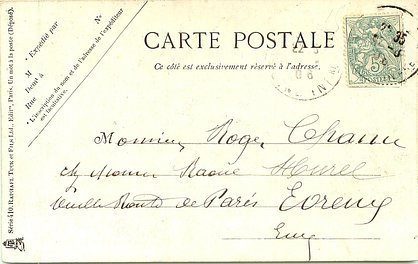 CARTE POSTALE
Ce côté est exclusivement réservé à l'adresse.
N°
Expédié par
M
Demt à
Rue
L'inscription du nom et de l'adresse de l'expéditeur
est facultative.
Série 419. RAPHAEL TUCK ET FILS Ltd., Edit's, Paris. Un mot à la poste (Déposé).
5
Monsieur Roger
chez Monsieur Raoul Morel
Vieille Route de Paris Evreux
Eure